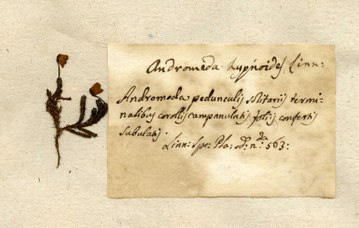 Andromeda hypnoides Linn:
Andromeda pedunculis solitariis termi-
nalibus corollis campanulatis foliis confertis
subulatis.
Linn: Spe: Pla: ed: 2da n: 563: